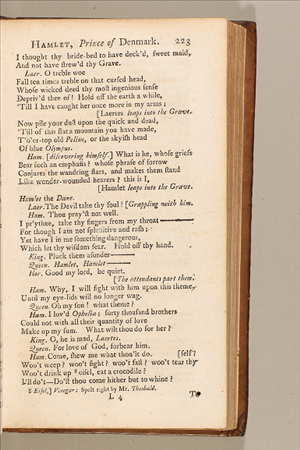 HAMLET, Prince of Denmark. 223
I thought thy bride-bed to have deck'd, sweet maid,
And not have strew'd thy Grave.
Laer. O treble woe
Fall ten times treble on that cursed head,
Whose wicked deed thy most ingenious sense
Depriv'd thee of! Hold off the earth a while,
'Till I have caught her once more in my arms;
[Laertes leaps into the Grave.
Now pile your dust upon the quick and dead,
'Till of this flat a mountain you have made,
T'o'er-top old Pelion, or the skyish head
Of blue Olympus.
Ham. [discovering himself.] What is he, whose griefs
Bear such an emphasis? whose phrase of sorrow
Conjures the wandring stars, and makes them stand
Like wonder-wounded hearers? this is I,
[Hamlet leaps into the Grave.
Hamlet the Dane.
Laer. The Devil take thy soul! [Grappling with him.
Ham. Thou pray'st not well.
I pr'ythee, take thy fingers from my throat———
For though I am not splenitive and rash;
Yet have I in me something dangerous,
Which let thy wisdom fear. Hold off thy hand.
King. Pluck them asunder———
Queen. Hamlet, Hamlet———
Hor. Good my lord, be quiet.
[The attendants part them.
Ham. Why, I will fight with him upon this theme,
Until my eye-lids will no longer wag.
Queen. Oh my son! what theme?
Ham. I lov'd Ophelia; forty thousand brothers
Could not with all their quantity of love
Make up my sum. What wilt thou do for her?
King. O, he is mad, Laertes.
Queen. For love of God, forbear him.
Ham. Come, shew me what thou'lt do. [self?
Woo't weep? woo't fight? woo't fast? woo't tear thy
Woo't drink up ⁵ eisel, eat a crocodile?
I'll do't—Do'st thou come hither but to whine?
5 Eisel,] Vinegar: Spelt right by Mr. Theobald.
L 4 To